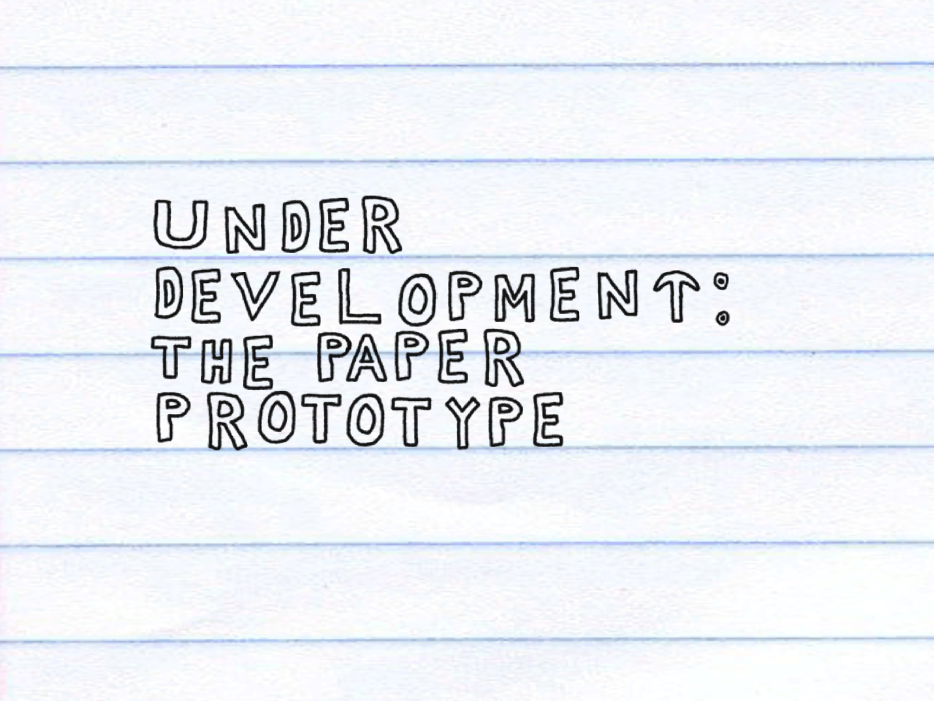 UNDER
DEVELOPMENT:
THE PAPER
PROTOTYPE